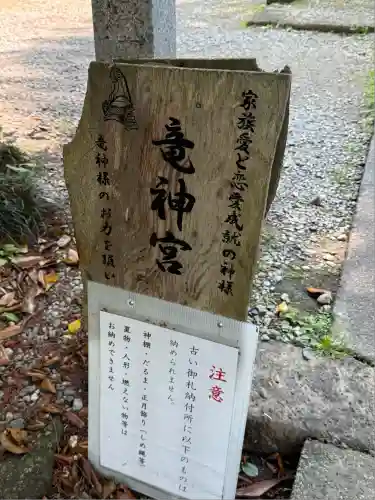 家族愛と恋愛成就の神様
竜神宮
竜神様のお力を扱い
注意
古いお札納付所に以下のものは
納められません。
神棚・だるま・正月飾り(しめ縄等)
置物・人形・燃えない物等は
お納めできません